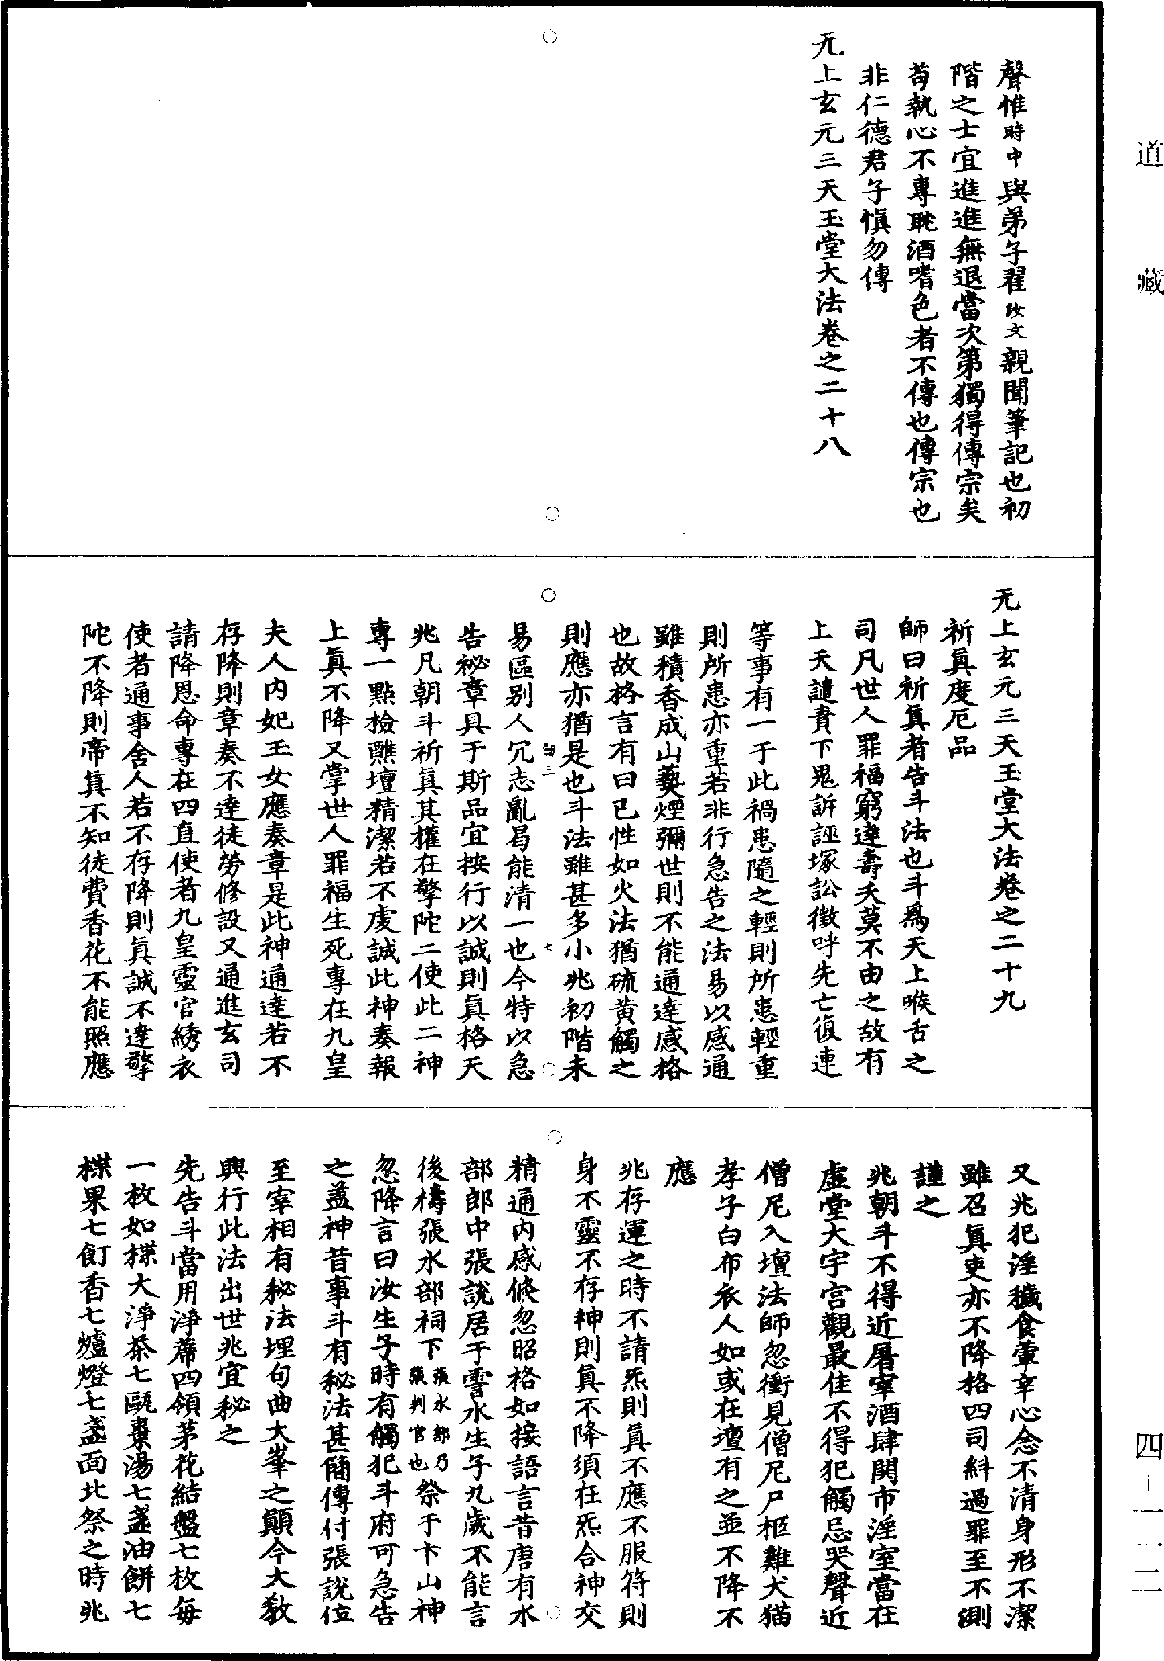 道藏
聲惟時中與弟子翟汝文親聞筆記也初
階之士宜進進無退當次第獨得傳宗矣
苟執心不專耽酒嗜色者不傳也傳宗也
非仁德君子慎勿傳
无上玄元三天玉堂大法卷之二十八
无上玄元三天玉堂大法卷之二十九
祈真度厄品
師曰祈真者告斗法也斗為天上喉舌之
司凡世人罪福窮達壽夭莫不由之故有
上天譴責下鬼訴誣塚訟徵呼先亡復連
等事有一于此禍患隨之輕則所患輕重
則所患亦重若非行急告之法易以感通
雖積香成山爇煙彌世則不能通達感格
也故格言有曰已性如火法猶硫黄觸之
則應亦猶是也斗法雖甚多小兆初階未
易區别人冗志亂曷能清一也今特以急
告祕章具于斯品宜按行以誠則真格天
兆凡朝斗祈真其權在擎陀二使此二神
專一點檢醮壇精潔若不虔誠此神奏報
上真不降又掌世人罪福生死專在九皇
夫人内妃玉女應奏章是此神通達若不
存降則章奏不達徒勞修設又通進玄司
請降恩命專在四直使者九皇靈官綉衣
使者通事舍人若不存降則真誠不達擎
陀不降則帝真不知徒費香花不能照應
又兆犯淫穢食葷辛心念不清身形不潔
雖召真吏亦不降格四司糾過罪至不測
謹之
兆朝斗不得近屠宰酒肆関市淫室當在
虛堂大宇宫觀最佳不得犯觸忌哭聲近
僧尼入壇法師忽衝見僧尼尸柩雞犬猫
孝子白布衣人如或在壇有之並不降不
應
兆存運之時不請炁則真不應不服符則
身不靈不存神則真不降須在炁合神交
精通内感倏忽昭格如接語言昔唐有水
部郎中張說居于霅水生子九歲不能言
後禱張水部祠下張水部乃張判官也祭于卞山神
忽降言曰汝生子時有觸犯斗府可急告
之葢神昔事斗有秘法甚簡傳付張說位
至宰相有秘法埋句曲大峯之顛今大教
興行此法出世兆宜秘之
先告斗當用淨蓆四領茅花結盤七枚每
一枚如楪大淨茶七甌棗湯七盞油餅七
楪果七飣香七爐燈七盞面北祭之時兆
四-一一二